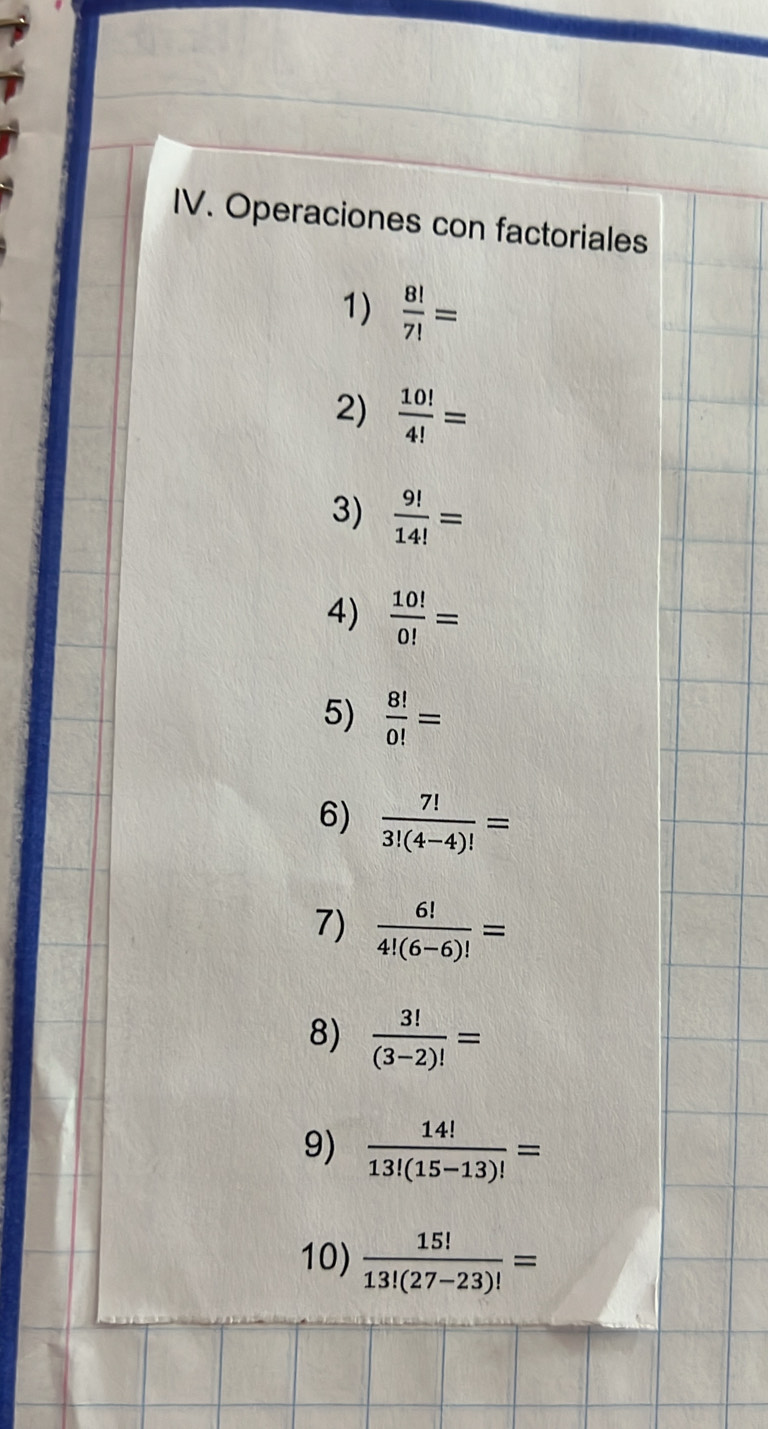 IV. Operaciones con factoriales
1) 8!/7! =
2) 10!/4! =
3) 9!/14! =
4) 10!/0! =
5) 8!/0! =
6) 7!/3!(4−4)! =
7) 6!/4!(6−6)! =
8) 3!/(3−2)! =
9) 14!/13!(15−13)! =
10) 15!/13!(27−23)! =